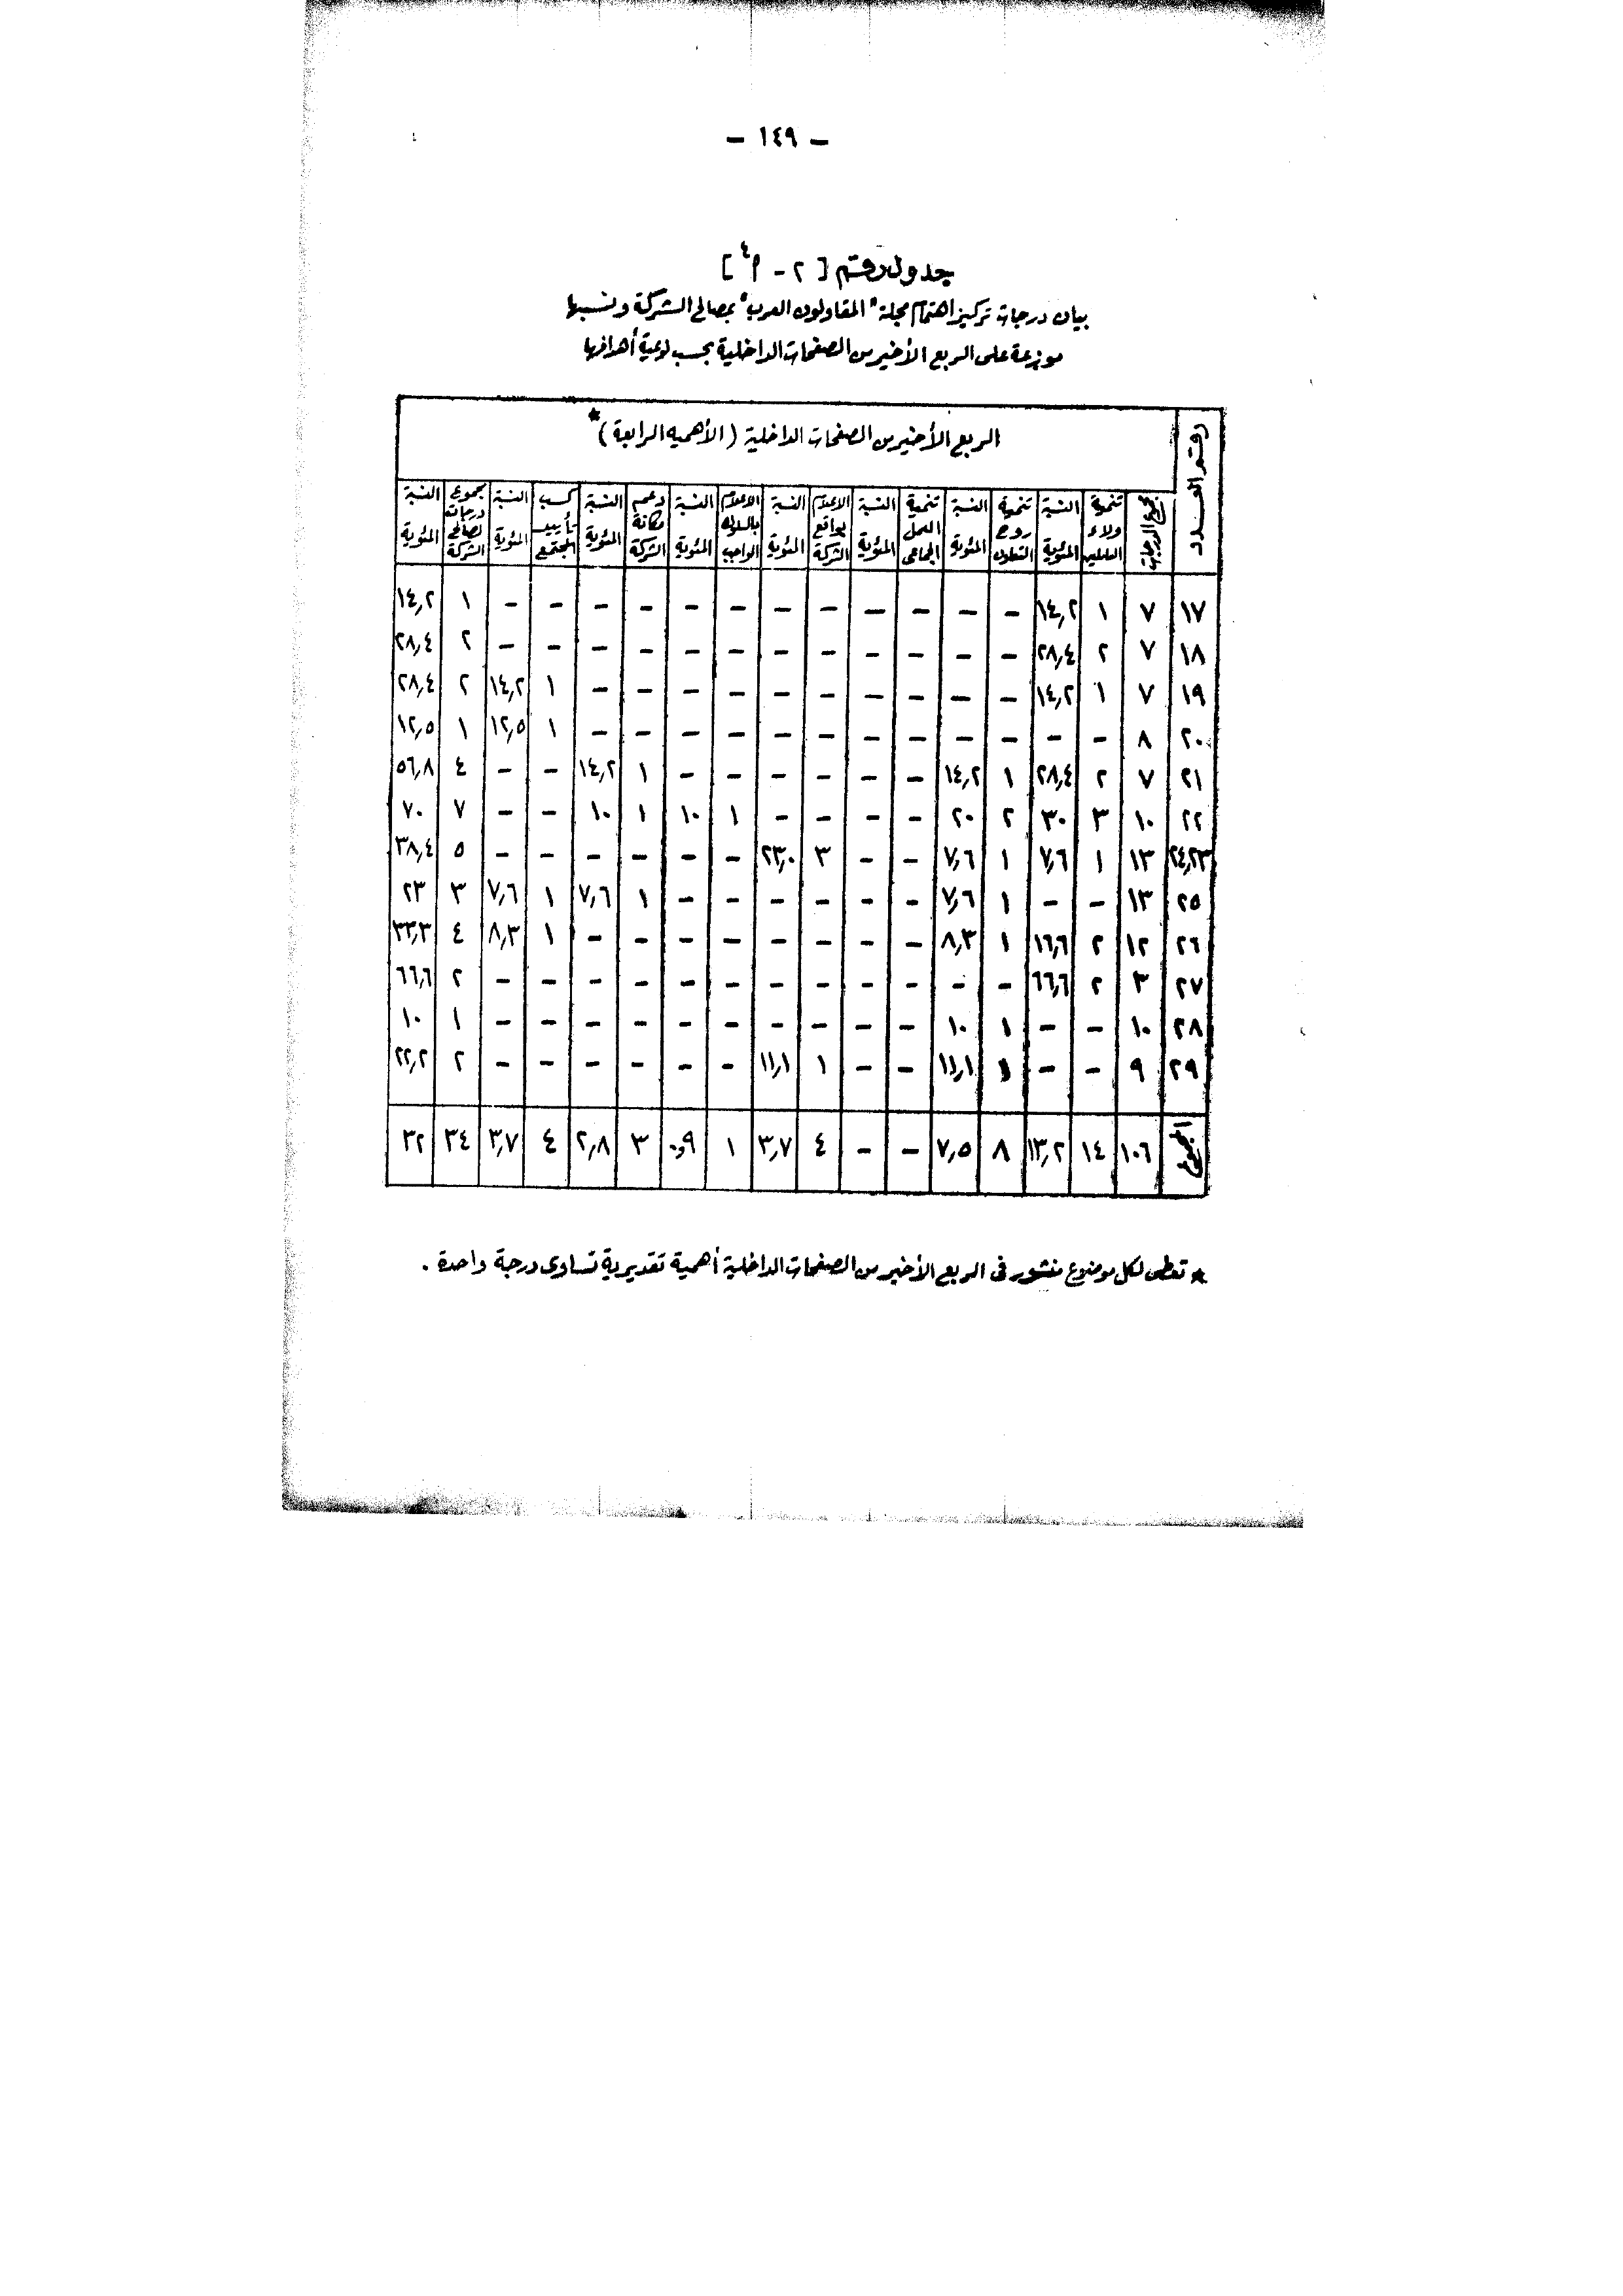 - ١٤٩ -
جدول رقم [ ٢ - أ٤ ]
بيان درجات تركيز اهتمام مجلة "المقاولون العرب" بمصالح الشركة ونسبها
موزعة على الربع الأخير من الصفحات الداخلية بحسب نوعية أهدافها
رقم العدد
الربع الأخير من الصفحات الداخلية ( الأهمية الرابعة ) *
مجموع الدرجات | تنمية ولاء العاملين | النسبة المئوية | تنمية روح التعاون | النسبة المئوية | تنمية العمل الجماعى | النسبة المئوية | الاعلام بواقع الشركة | النسبة المئوية | الاعلام بالسلوك الواجب | النسبة المئوية | دعم مكانة الشركة | النسبة المئوية | كسب تأييد المجتمع | النسبة المئوية | مجموع درجات لصالح الشركة | النسبة المئوية
١٧ | ٧ | ١ | ١٤,٢ | - | - | - | - | - | - | - | - | - | - | - | - | ١ | ١٤,٢
١٨ | ٧ | ٢ | ٢٨,٤ | - | - | - | - | - | - | - | - | - | - | - | - | ٢ | ٢٨,٤
١٩ | ٧ | ١ | ١٤,٢ | - | - | - | - | - | - | - | - | - | - | ١ | ١٤,٢ | ٢ | ٢٨,٤
٢٠ | ٨ | - | - | - | - | - | - | - | - | - | - | - | - | ١ | ١٢,٥ | ١ | ١٢,٥
٢١ | ٧ | ٢ | ٢٨,٤ | ١ | ١٤,٢ | - | - | - | - | - | - | ١ | ١٤,٢ | - | - | ٤ | ٥٦,٨
٢٢ | ١٠ | ٣ | ٣٠ | ٢ | ٢٠ | - | - | - | - | ١ | ١٠ | ١ | ١٠ | - | - | ٧ | ٧٠
٢٤,٢٣ | ١٣ | ١ | ٧,٦ | ١ | ٧,٦ | - | - | ٣ | ٢٣,٠ | - | - | - | - | - | - | ٥ | ٣٨,٤
٢٥ | ١٣ | - | - | ١ | ٧,٦ | - | - | - | - | - | - | ١ | ٧,٦ | ١ | ٧,٦ | ٣ | ٢٣
٢٦ | ١٢ | ٢ | ١٦,٦ | ١ | ٨,٣ | - | - | - | - | - | - | - | - | ١ | ٨,٣ | ٤ | ٣٣,٣
٢٧ | ٣ | ٢ | ٦٦,٦ | - | - | - | - | - | - | - | - | - | - | - | - | ٢ | ٦٦,٦
٢٨ | ١٠ | - | - | ١ | ١٠ | - | - | - | - | - | - | - | - | - | - | ١ | ١٠
٢٩ | ٩ | - | - | ١ | ١١,١ | - | - | ١ | ١١,١ | - | - | - | - | - | - | ٢ | ٢٢,٢
المجموع | ١٠٦ | ١٤ | ١٣,٢ | ٨ | ٧,٥ | - | - | ٤ | ٣,٧ | ١ | ٠,٩ | ٣ | ٢,٨ | ٤ | ٣,٧ | ٣٤ | ٣٢
* تعطى لكل موضوع منشور فى الربع الأخير من الصفحات الداخلية أهمية تقديرية تساوى درجة واحدة .